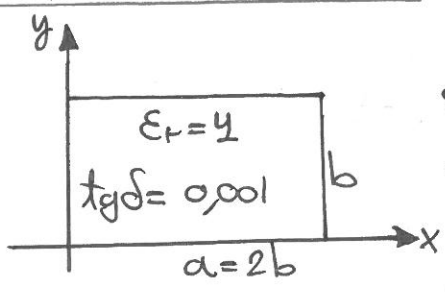 y
εr=4
tgδ= 0,001
b
x
a=2b